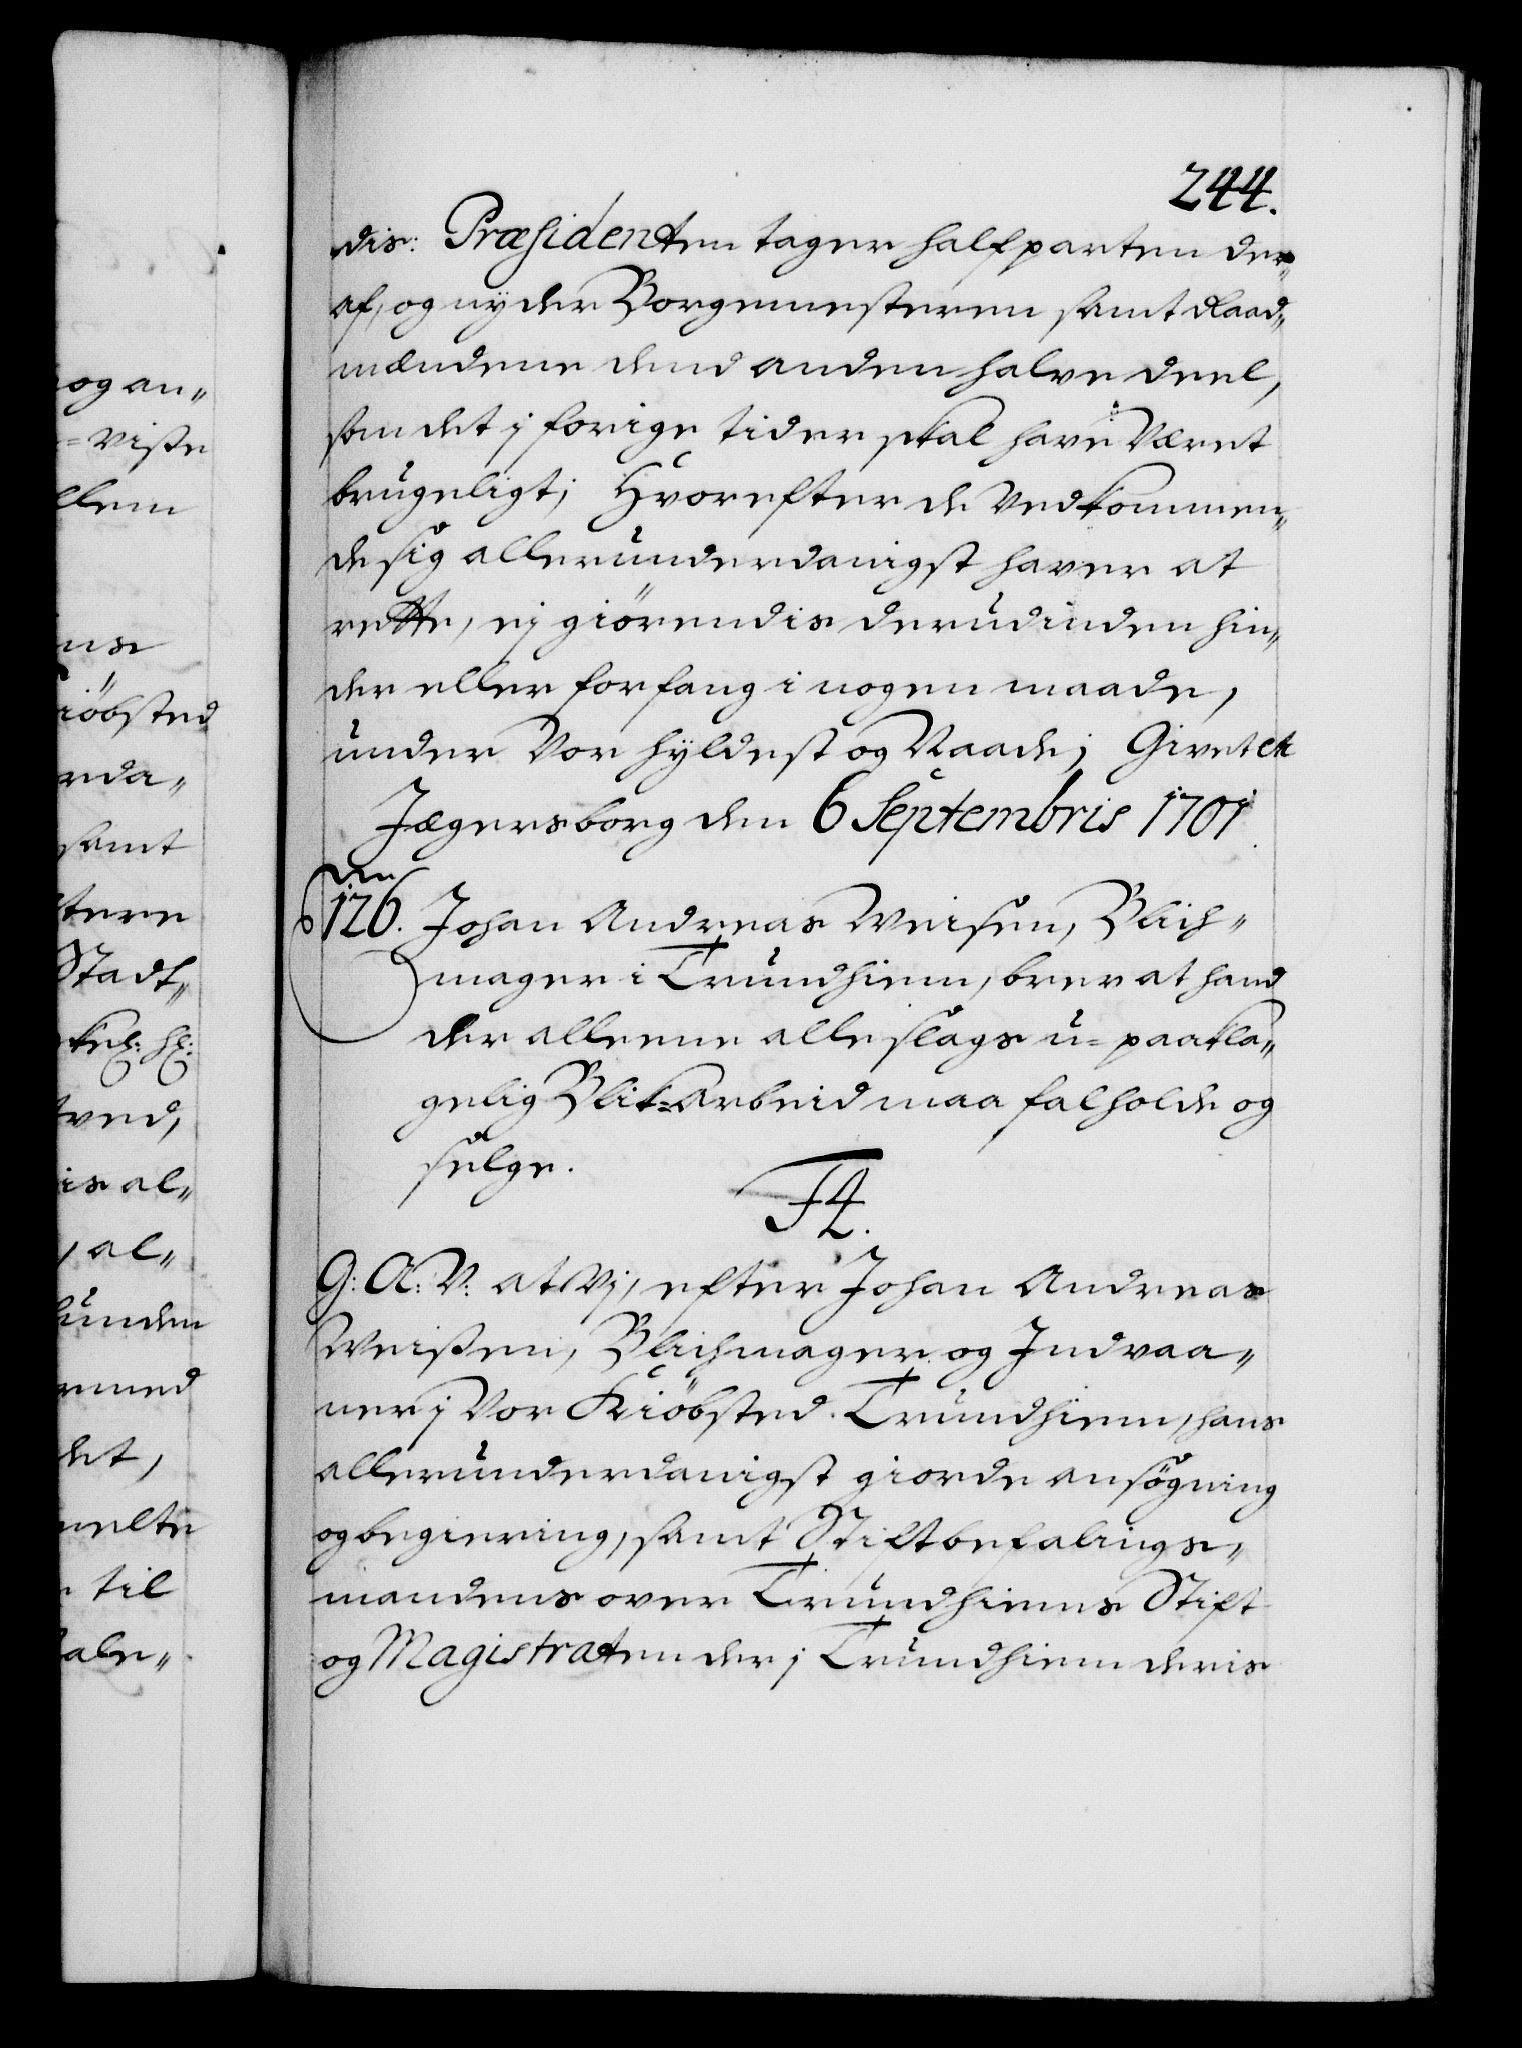 244.
dis: Præsidenten tager halfparten der„
af, og nyder Borgemesteren samt Raad„
mændene dend anden halve deel,
som det j forige tider skal have Været
brugeligt; Hvorefter de Vedkommen„
de sig allerunderdanigst haver at
rette, ej giörendis derudinden hin„
der eller forfang i nogen maade,
under Vor hyldest og Naade; Givet etc
Jægersborg den 6 Septembris 1701.
den
126. Johan Andreas Weisen, Blich„
mager i Trundhiem, brev at hand
der alleene alle slags u=paakla„
gelig Blik=Arbeid maa falholde og
selge.
F4.
G: A: V: at Vj, efter Johan Andreas
Weissen, Blichmager og Indvaa„
ner j Vor Kiöbsted Trundhiem, hans
allerunderdanigst giorde ansögning
og begiering, samt Stiftbefalings„
mandens over Trundhiems Stift
og Magistraten der j Trundhiem deris
og an„
=visse
llem
ens
iöbsted
rda„
samt
stere
Stadf„
tved,
is al„
, al„
unden
rmed
det,
melte
til
ale„